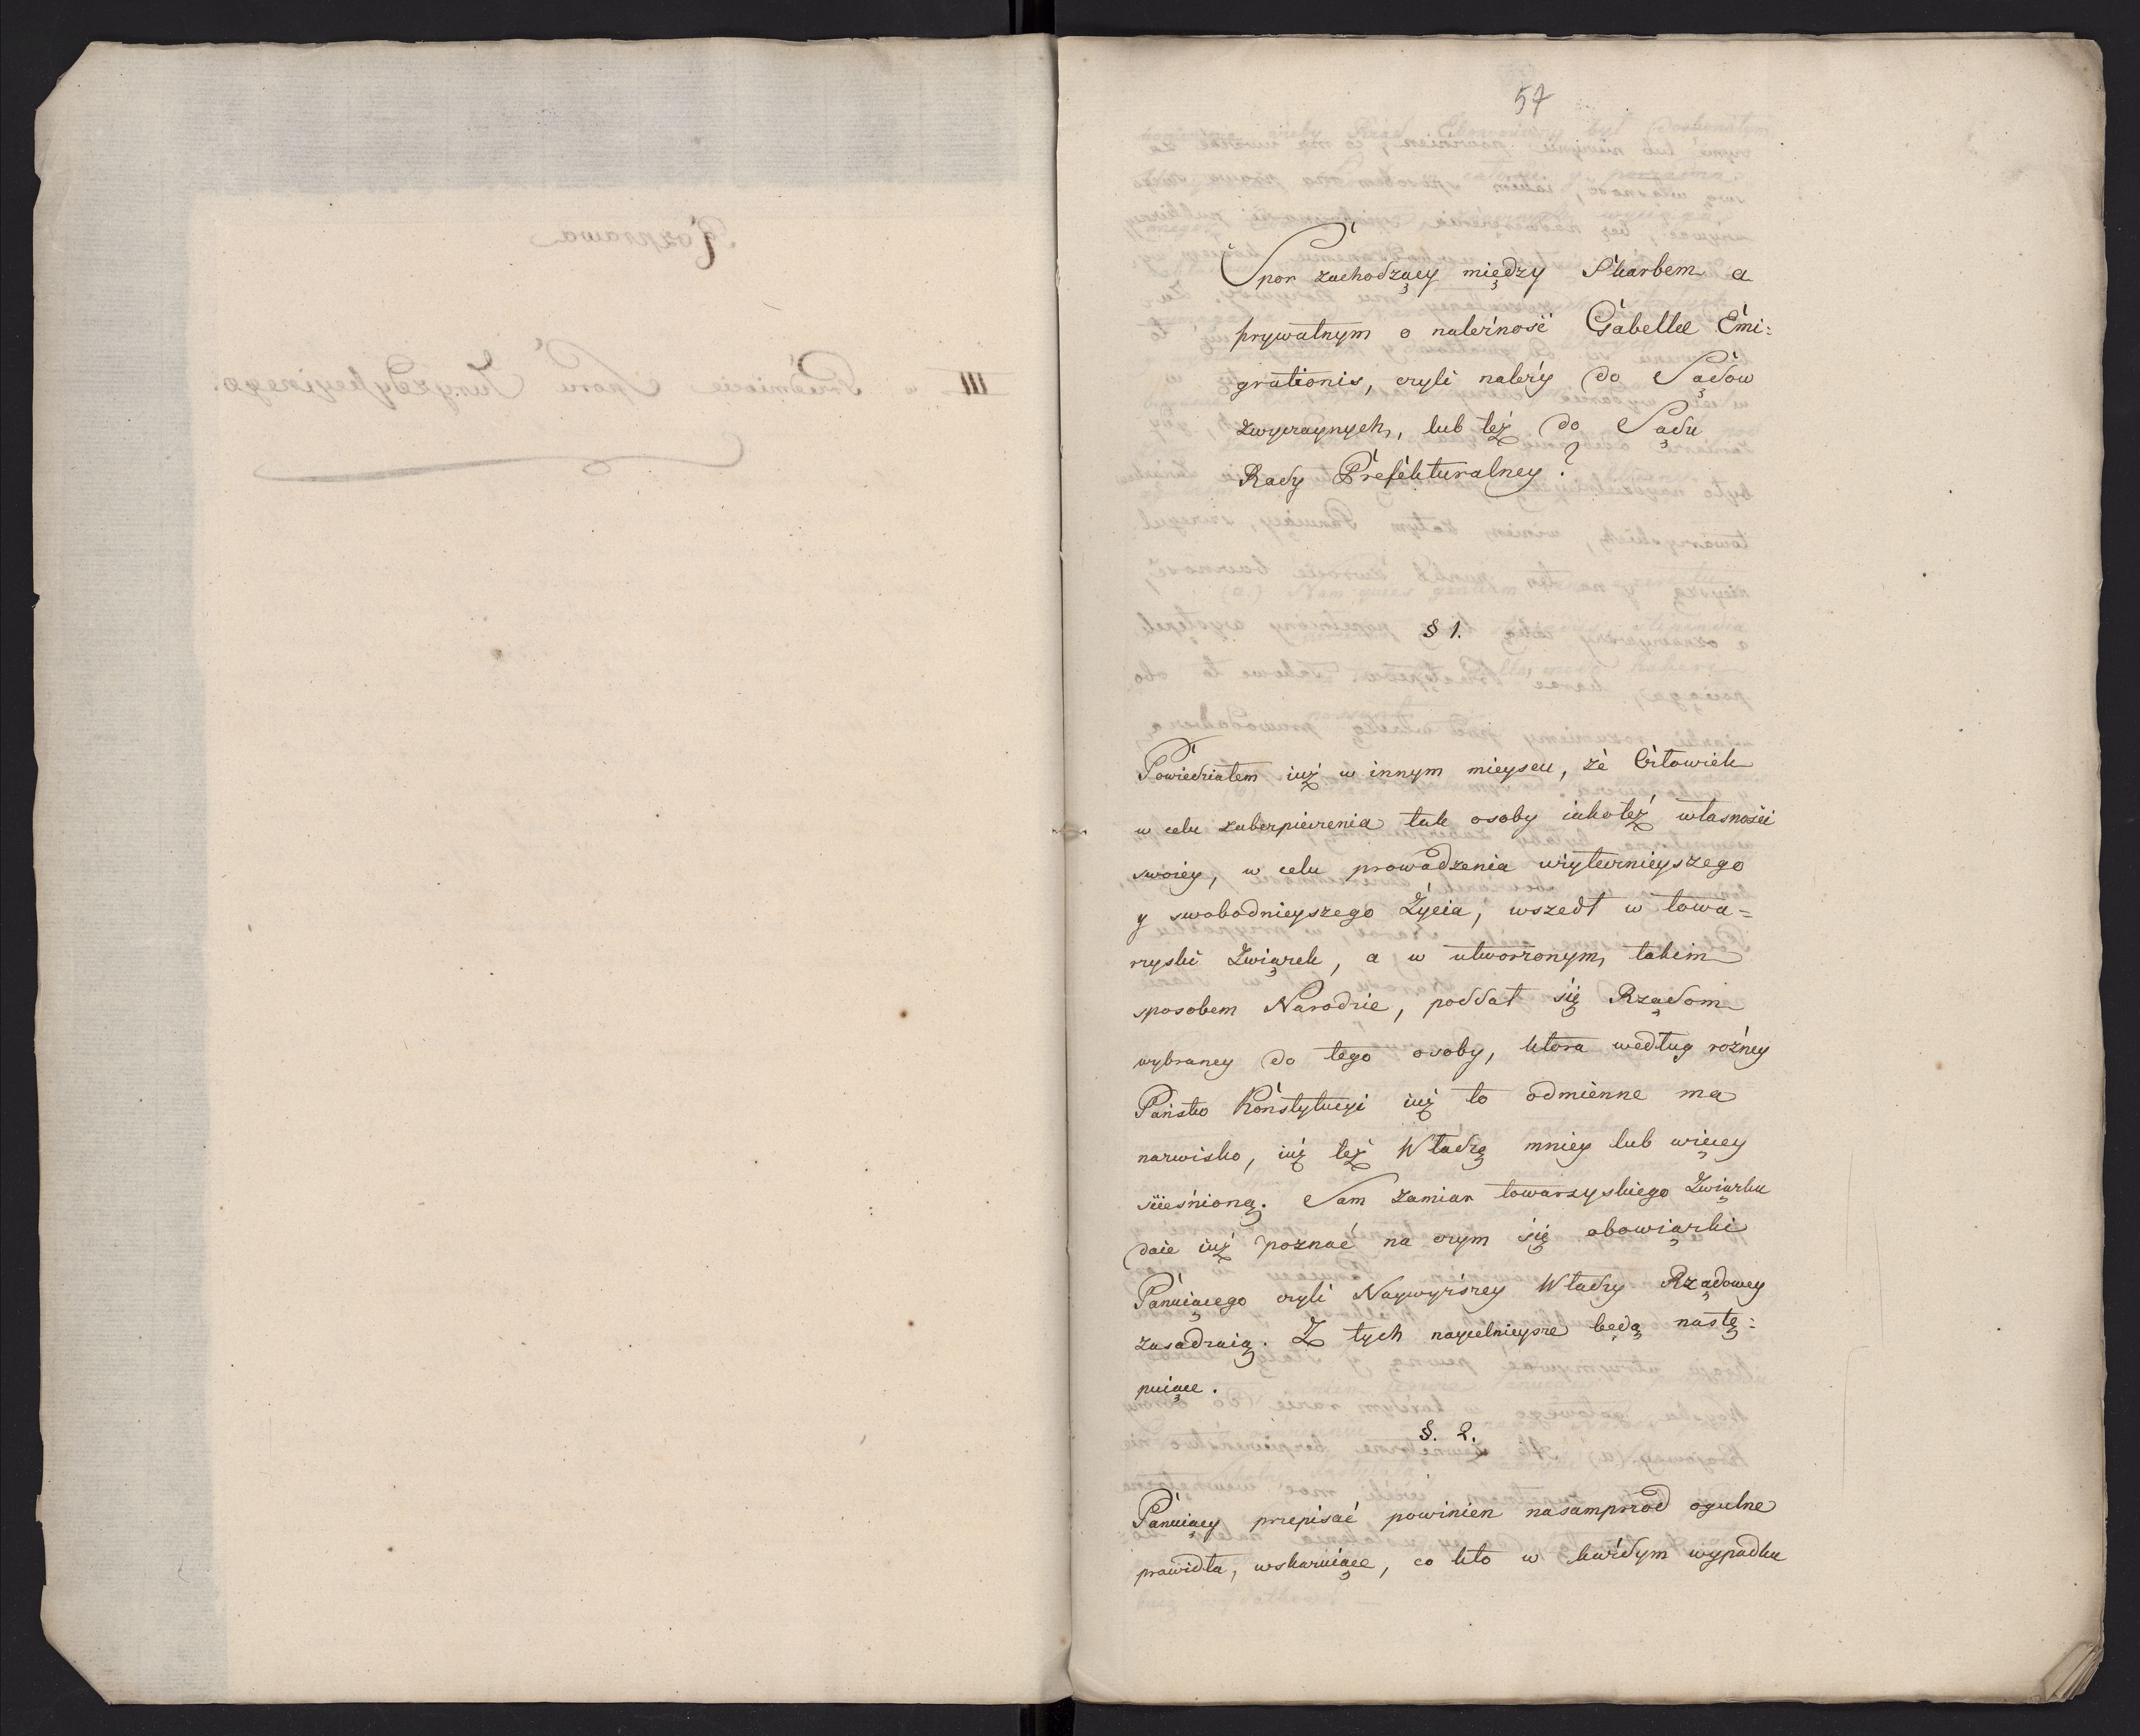 57
Spor zachodzący między Skarbem a
prywatnym o należność Gabellæ Emi:
grationis, czyli należy do Sądow
zwyczaynych, lub też do Sądu
Rady Prefekturalney?
§ 1.
Powiedziałem iuż w innym mieyscu, że Człowiek
w celu zabezpieczenia tak osoby iakoteż własności
swoiey, w celu prowadzenia użytecznieyszego
y swobodnieyszego Życia, wszedł w towa=
rzyski Związek, a w utworzonym takim
sposobem Narodzie, poddał się Rządom
wybraney do tego osoby, ktora według rożney
Państw Konstytucyi iuż to odmienne ma
nazwisko, iuż też Władzę mniey lub więcey
ścieśnioną. Sam zamiar towarzyskiego Związku
daie iuż poznać na czym się obowiązki
Panuiącego czyli Naywyższey Władzy Rządowey
zasadzaią. Z tych naycelnieysze będą nastę:
puiące.
§. 2.
Panuiący przepisać powinien nasamprzod ogulne
prawidła, wskazuiące, co kto w każdym wypadku